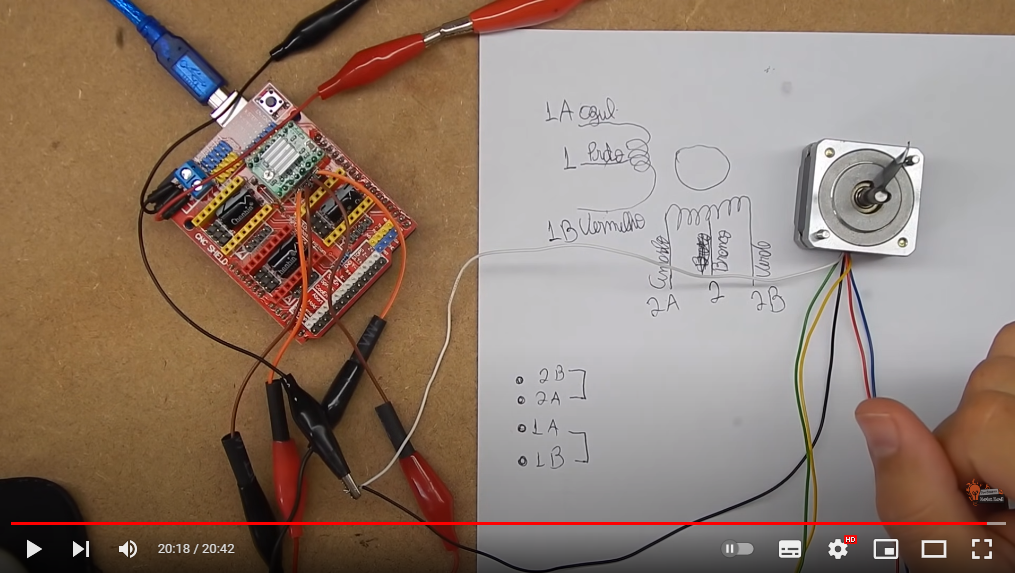 1A azul
1 Preto
1B Vermelho
Amarelo
Branco
Verde
2A
2
2B
2B
2A
1A
1B
CNC SHIELD
20:18 / 20:42
HD